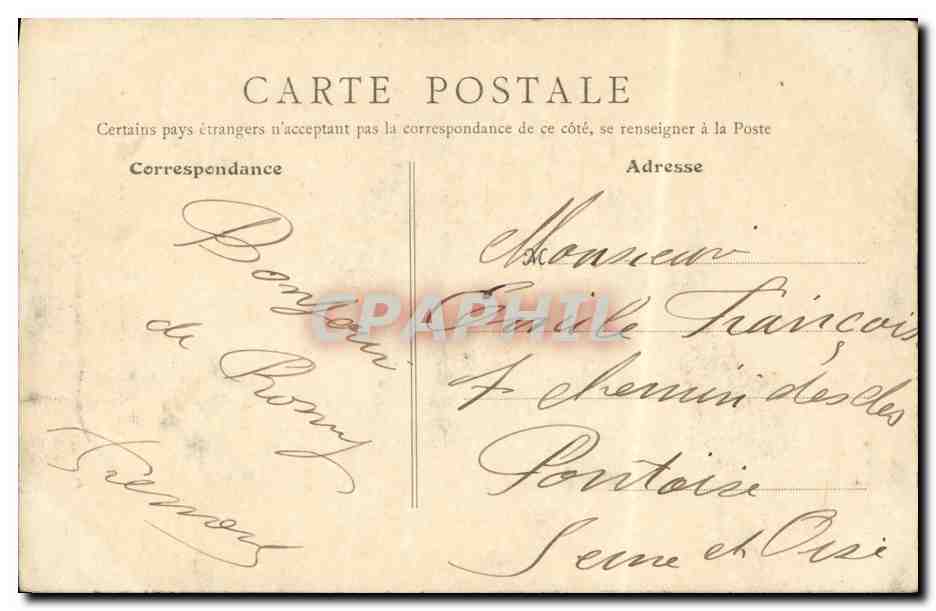 CARTE POSTALE
Certains pays étrangers n'acceptant pas la correspondance de ce côté, se renseigner à la Poste
Correspondance
Bonjour
de
Adresse
Monsieur
Emile François
7 chemin des
Pontoise
Seine et Oise
CPAPHIL